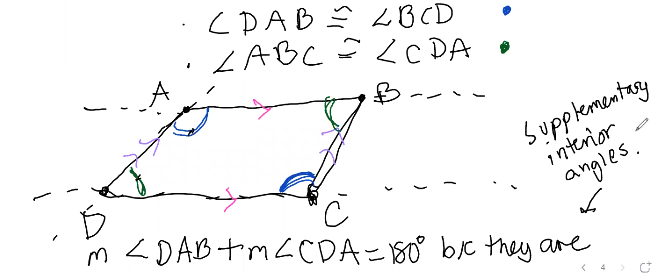 ∠DAB ≅ ∠BCD
∠ABC ≅ ∠CDA
A
B
supplementary
interior
angles.
D
C
m ∠DAB + m∠CDA = 180° b/c they are
4